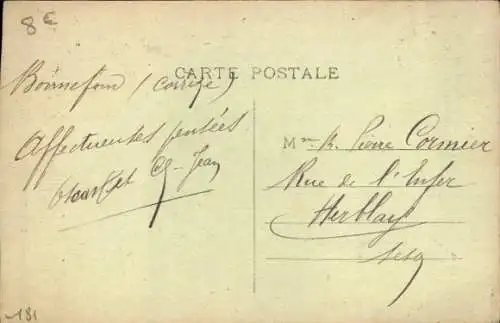 8€
CARTE POSTALE
Bonnefond (Corrèze)
Affectueuses pensées
Jean
Mme R. Pierre Cormier
Rue de l'Enfer
Herblay
181